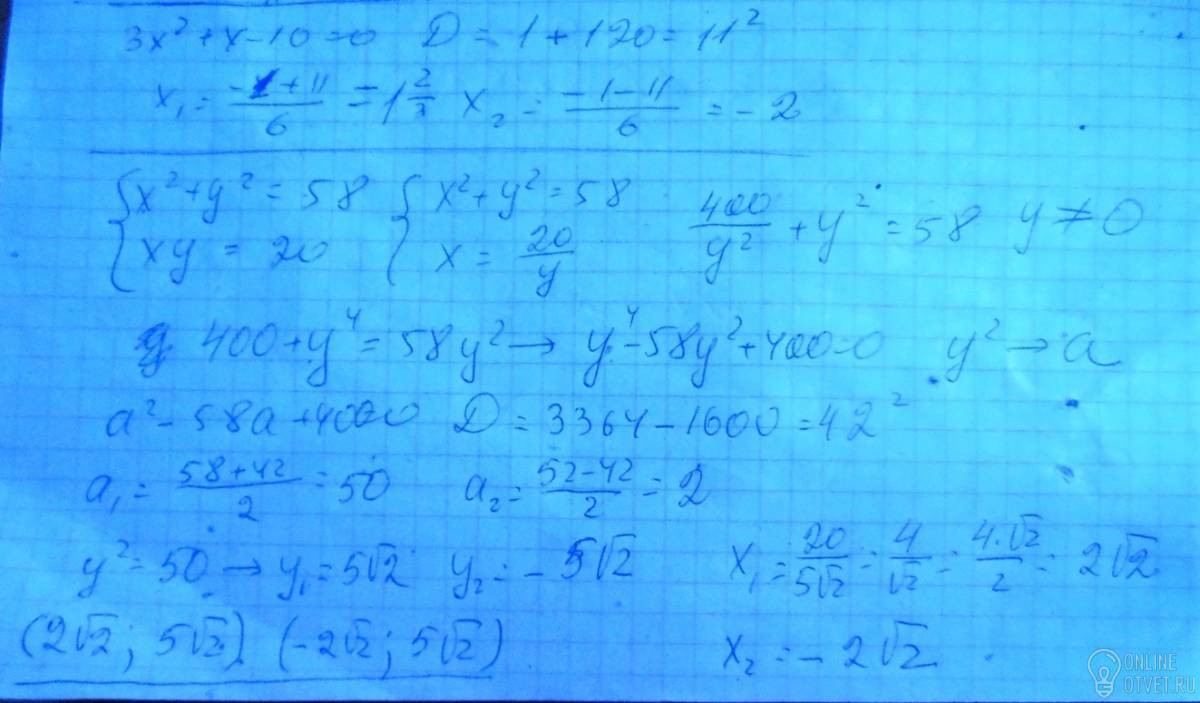 3x²+x-10=0 D = 1+120=11²
x₁= (-1+11)/6 = 1 2/3 x₂ = (-1-11)/6 = -2
{x²+y²=58 {x²+y²=58 400/y² + y² = 58 y≠0
{xy = 20 {x = 20/y
400+y⁴=58y² → y⁴-58y²+400=0 y²→a
a²-58a+400=0 D = 3364-1600=42²
a₁= (58+42)/2 = 50 a₂= (52-42)/2 = 2
y²=50 → y₁=5√2 y₂=-5√2 x₁= 20/5√2 = 4/√2 = 4·√2/2 = 2√2
(2√2; 5√2) (-2√2; 5√2) x₂=-2√2
ONLINE
OTVET.RU